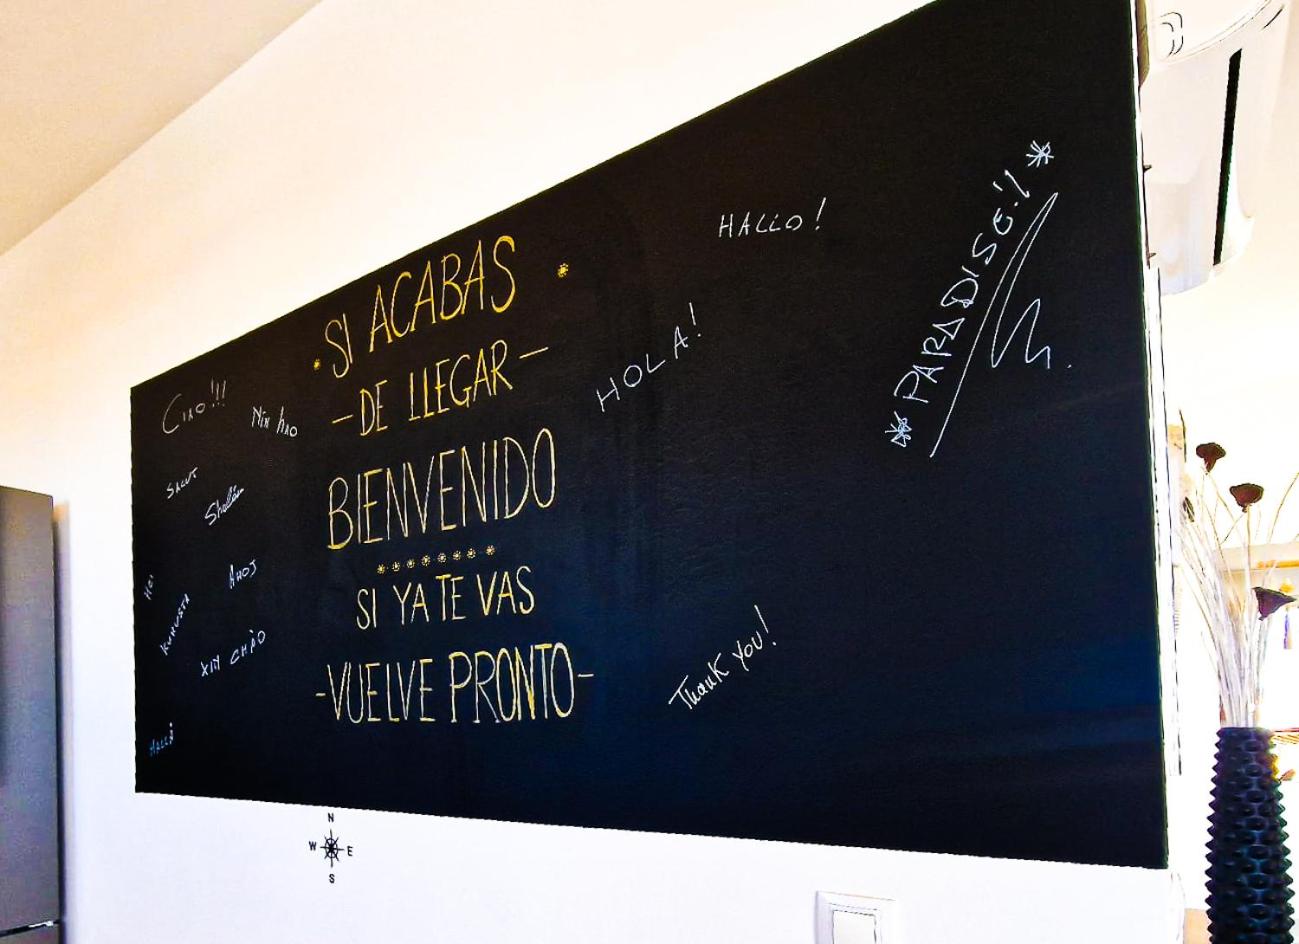 SI ACABAS
-DE LLEGAR-
BIENVENIDO
SI YA TE VAS
-VUELVE PRONTO-
Ciao!!!
Nin hao
SALUT
Shalom
AHOJ
XIN CHÀO
HALLÅ
HALLO!
HOLA!
PARADISO!
Thank you!
N
W E
S